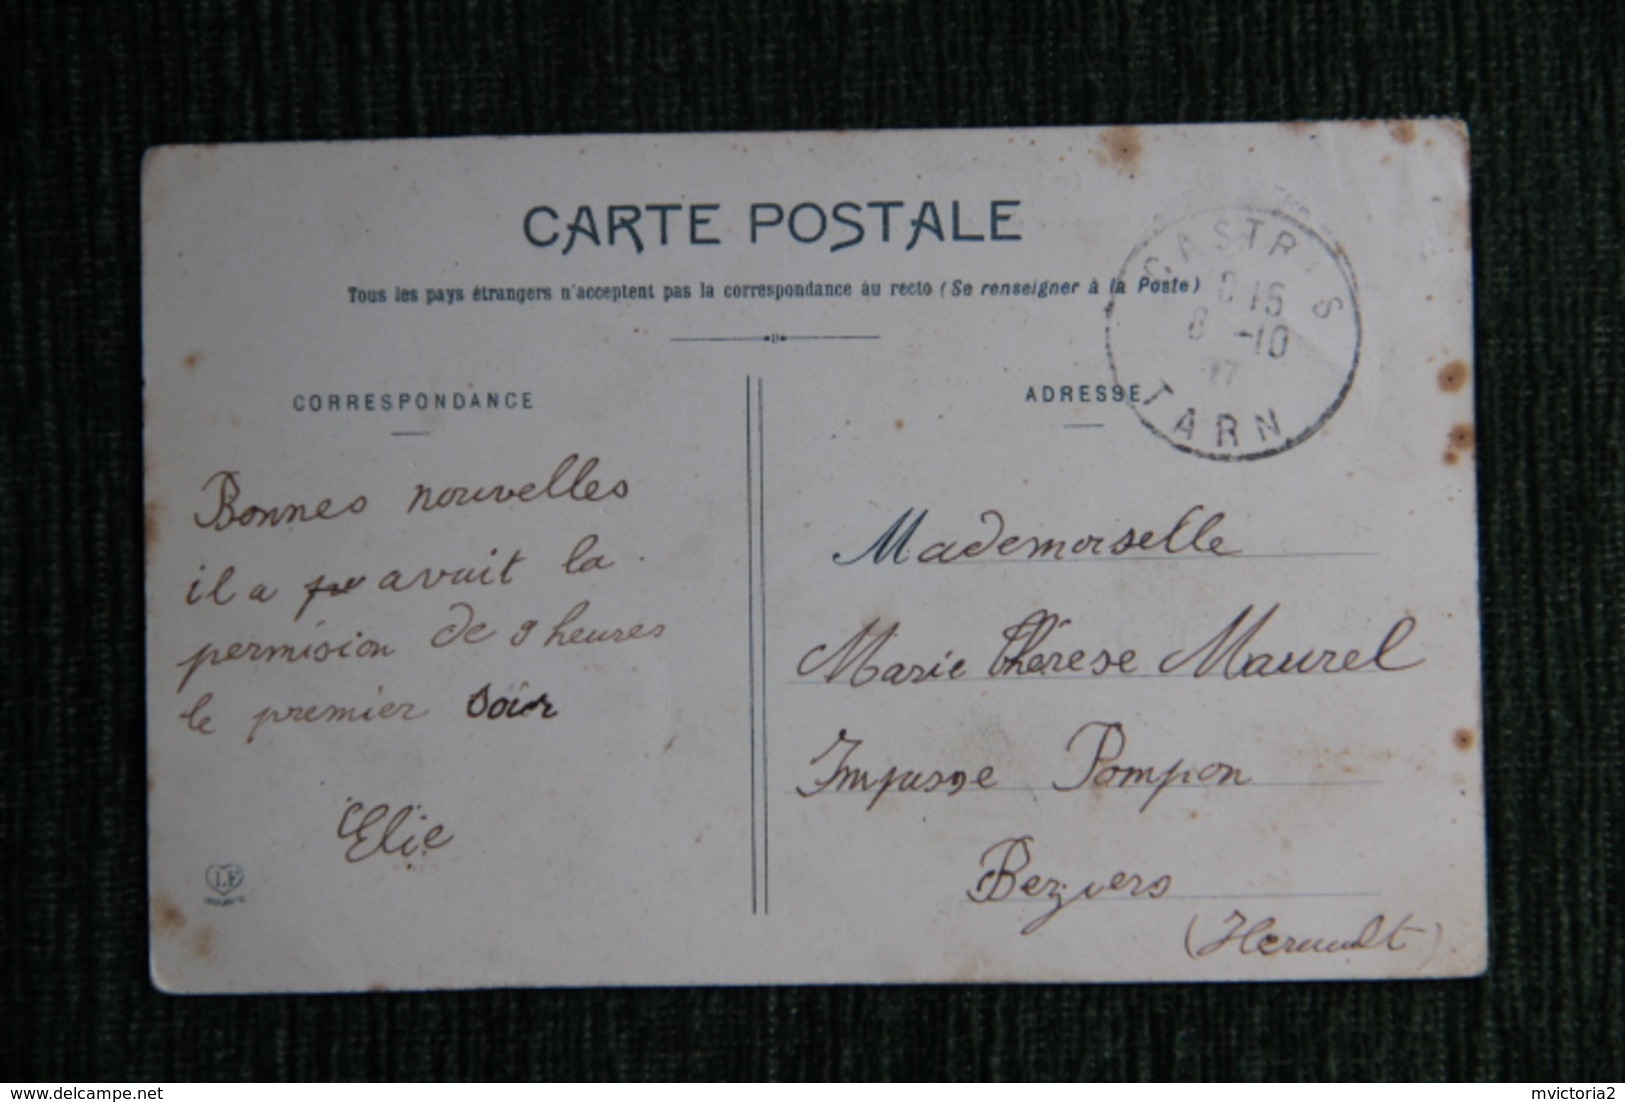 CARTE POSTALE
Tous les pays étrangers n'acceptent pas la correspondance au recto (Se renseigner à la Poste)
CASTRES
15
-10
TARN
CORRESPONDANCE
ADRESSE
Bonnes nouvelles
il a avait la
permision de 9 heures
le premier soir
Elie
Mademoiselle
Marie Thérese Maurel
Impasse Pompon
Beziers
(Herault)
delcampe.net
mvictoria2